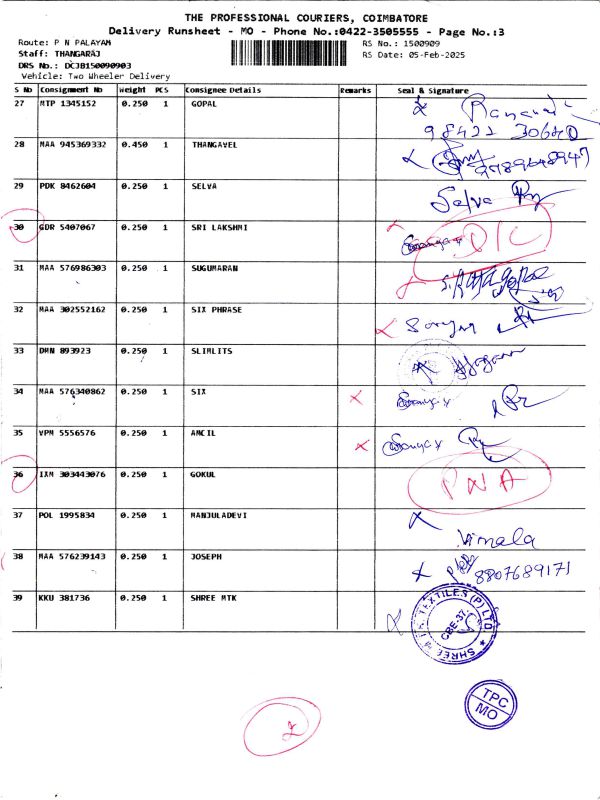 THE PROFESSIONAL COURIERS, COIMBATORE
Delivery Runsheet - MO - Phone No.:0422-3505555 - Page No.:3
Route: P N PALAYAM
RS No.: 1500909
Staff: THANGARAJ
RS Date: 05-Feb-2025
DRS No.: DCJB1500090903
Vehicle: Two Wheeler Delivery
S No Consignment No Weight PCS Consignee Details Remarks Seal & Signature
27 MTP 1345152 0.250 1 GOPAL
98422 30640
28 MAA 945369332 0.450 1 THANGAVEL
9789648947
29 PDK 8462604 0.250 1 SELVA Selva
30 GDR 5407067 0.250 1 SRI LAKSHMI
31 MAA 576986303 0.250 1 SUGUMARAN
32 MAA 302552162 0.250 1 SIX PHRASE
33 DMN 893923 0.250 1 SLIMLITS
34 MAA 576340862 0.250 1 SIX
35 VPM 5556576 0.250 1 AMCIL
36 IXM 303443076 0.250 1 GOKUL PNA
37 POL 1995834 0.250 1 MANJULADEVI
Vimala
38 MAA 576239143 0.250 1 JOSEPH
8807689171
39 KKU 381736 0.250 1 SHREE MTK
SHREE TEXTILES (P) LTD
CBE-37.
TPC
MO
2